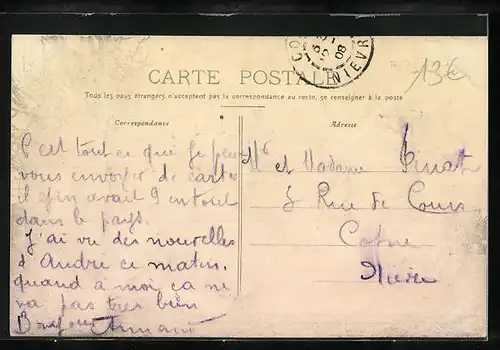 CARTE POSTALE
Tous les pays étrangers n'acceptent pas la correspondance au recto, se renseigner à la poste
Correspondance
Adresse
C'est tout ce que je peux
vous envoyer de cartes
il y en avait 9 en tout
dans le pays.
J'ai vu des nouvelles
d'André ce matin,
quand à moi ça ne
va pas très bien
Bonjour Armand
Mr et Madame
5 Rue de Cours
Cosne
Nièvre
NIEVRE
08
13€